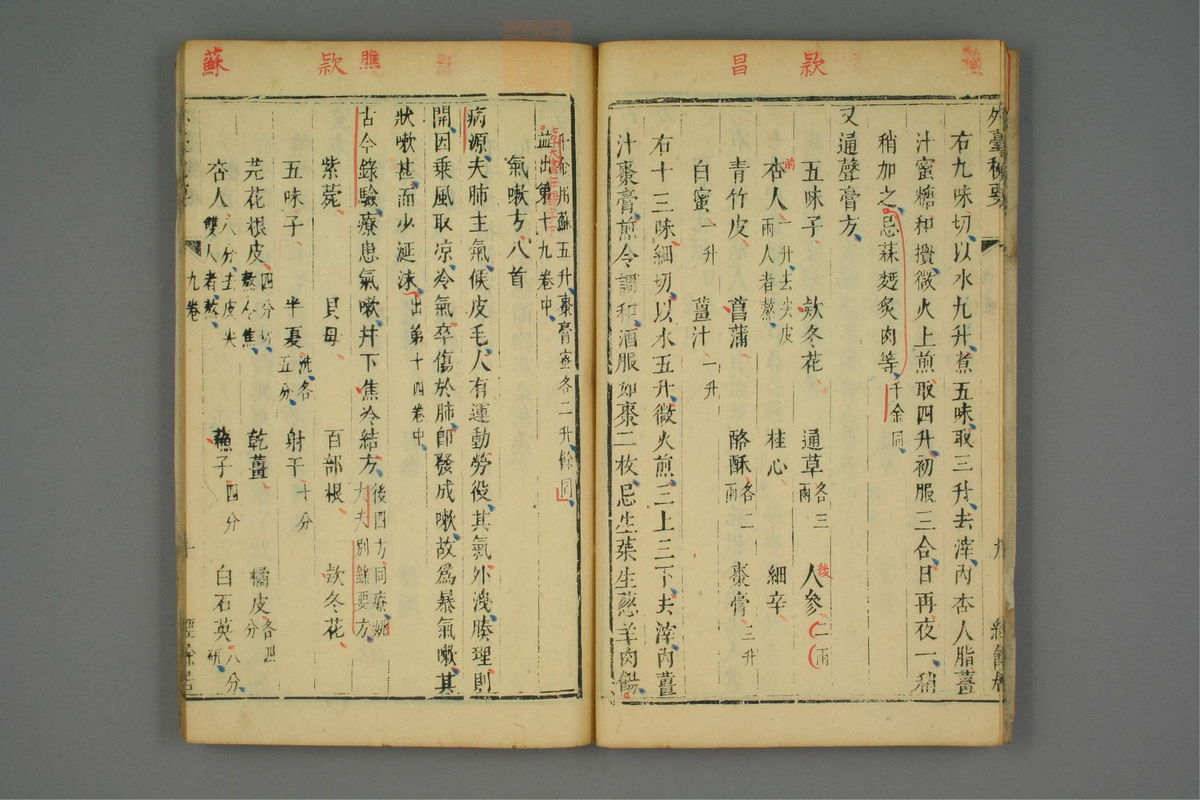 昌 款
外臺秘要
右九味切以水九升煮五味取三升去滓內杏人脂薑
汁蜜糖和攪微火上煎取四升初服三合日再夜一稍
稍加之忌蒜麪炙肉等千金同
又通聲膏方
五味子 款冬花 通草各三兩 人參二兩 後
杏人一升去尖皮兩人者熬 桂心 細辛 前
青竹皮 菖蒲 酪酥各二兩 棗膏三升
白蜜一升 薑汁一升
右十三味細切以水五升微火煎三上三下去滓內薑
汁棗膏煎令調和酒服如棗二枚忌生菜生葱羊肉餳
蘇 款 膲
千金用酥五升棗膏蜜各二升餘同
並出第十九卷中
氣嗽方八首
病源夫肺主氣候皮毛人有運動勞役其氣外洩腠理則
開因乘風取凉冷氣卒傷於肺即發成嗽故為暴氣嗽其
狀嗽甚而少涎沫出第十四卷中
古今錄驗療患氣嗽并下焦冷結方後四方同療姚大夫別錄要方
紫菀 貝母 百部根 款冬花
五味子 半夏洗各五分 射干十分
芫花根皮四分切熬令焦 乾薑 橘皮各四分
杏人八分去皮尖雙人者熬 蘇子四分 白石英八分研
九卷 十 經餘居